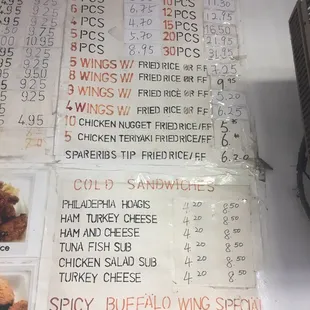 9.25
9.25
9.25
9.25
4.95
6 PCS 6.75
4 PCS 4.70
5 PCS 5.70
8 PCS 8.95
10 PCS 11.30
12 PCS 12.95
15 PCS 16.50
20 PCS
30 PCS 31.95
5 WINGS W/ FRIED RICE OR F.F
8 WINGS W/ FRIED RICE OR F.F 9.95
9 WINGS W/ FRIED RICE OR F.F
4 WINGS W/ FRIED RICE OR F.F
10 CHICKEN NUGGET FRIED RICE/FF
5 CHICKEN TERIYAKI FRIED RICE/FF
SPARERIBS TIP FRIED RICE/FF 6.20
COLD SANDWICHES
PHILADEPHIA HOAGIS 4.20 8.50
HAM TURKEY CHEESE 4.20 8.50
HAM AND CHEESE 4.20 8.50
TUNA FISH SUB 4.20 8.50
CHICKEN SALAD SUB 4.20 8.50
TURKEY CHEESE 4.20 8.50
SPICY BUFFALO WING SPECIAL